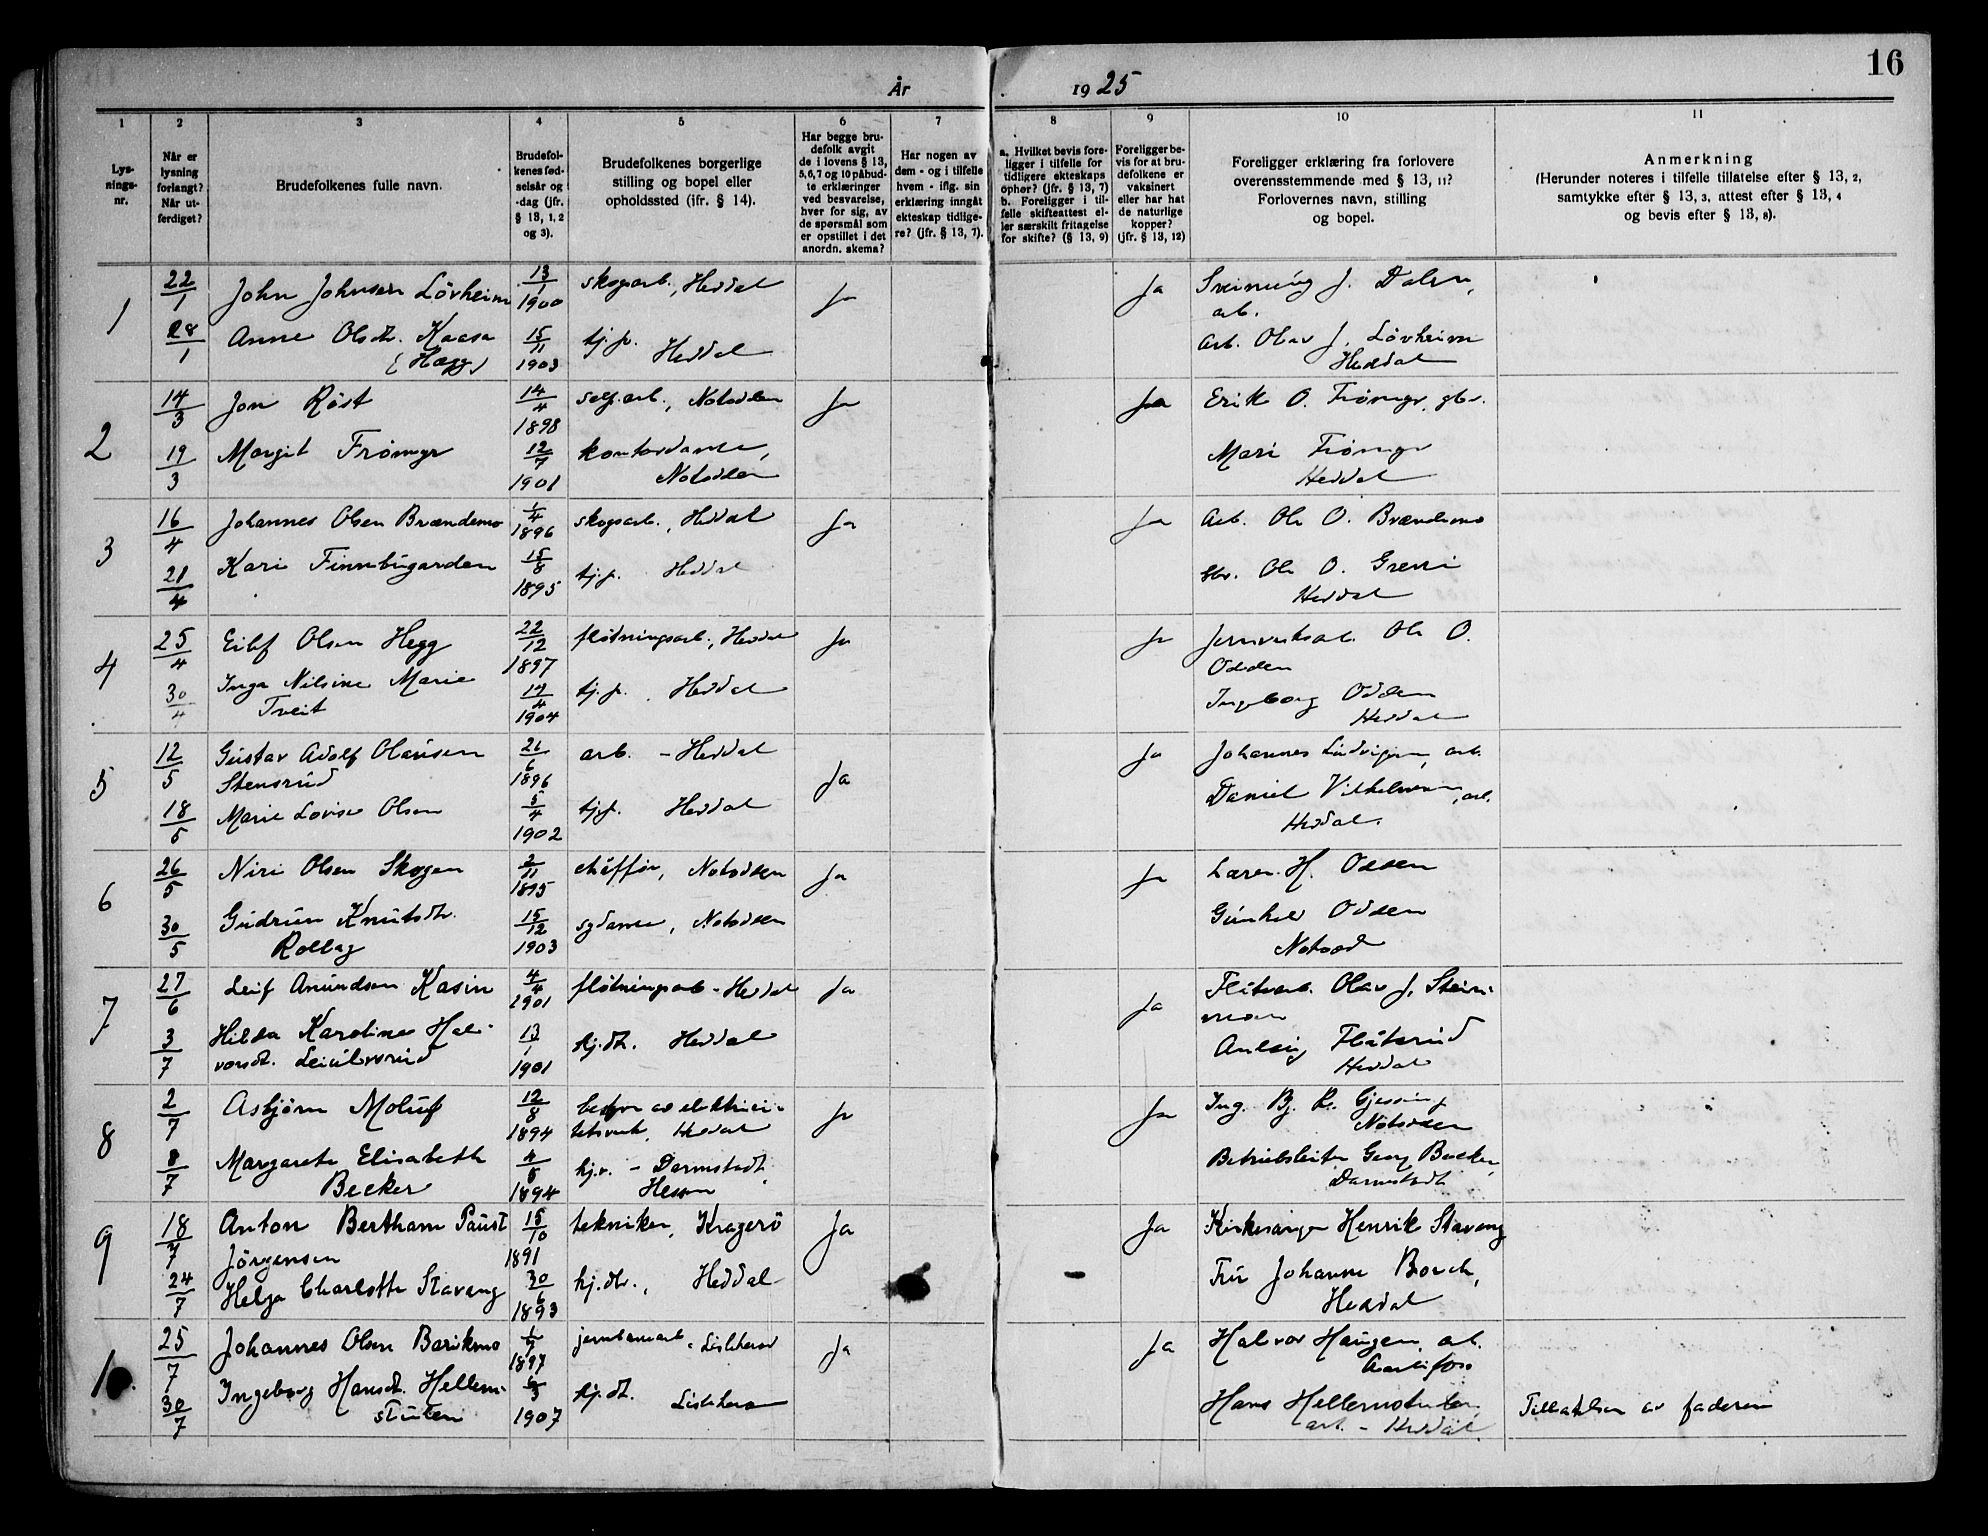 16
År 1925
1 2 3 4 5 6 7 8 9 10 11
Lys-
nings-
nr.
Når er
lysning
forlangt?
Når ut-
ferdiget?
Brudefolkenes fulle navn.
Brudefol-
kenes fød-
selsår og
-dag (jfr.
§ 13, 1, 2
og 3).
Brudefolkenes borgerlige
stilling og bopel eller
opholdssted (ifr. § 14).
Har begge bru-
defolk avgit
de i lovens § 13,
5,6,7 og 10 påbud-
te erklæringer
ved besvarelse,
hver for sig, av
de spørsmål som
er opstillet i det
anordn. skema?
Har nogen av
dem - og i tilfelle
hvem - iflg. sin
erklæring inngåt
ekteskap tidlige-
re? (jfr. § 13, 7).
a. Hvilket bevis fore-
ligger i tilfelle for
tidligere ekteskaps
ophør? (jfr. § 13, 7)
b. Foreligger i til-
felle skifteattest el-
ler særskilt fritagelse
for skifte? (§ 13, 9)
Foreligger be-
vis for at bru-
defolkene er
vaksinert
eller har hat
de naturlige
kopper?
(jfr. § 13, 12)
Foreligger erklæring fra forlovere
overensstemmende med § 13, 11?
Forlovernes navn, stilling
og bopel.
Anmerkning
(Herunder noteres i tilfelle tillatelse efter § 13, 2,
samtykke efter § 13, 3, attest efter § 13, 4
og bevis efter § 13, 8).
1 22/1 John Johnsen Lövheim 13/1 1900 skogsarb., Heddal Ja Ja Sveinung J. Dalen,
arb.
28/1 Anne Olsdt. Kaasa 15/11 1903 tj.p. Heddal Arb. Olav J. Lövheim
(Hægg) Heddal
2 14/3 Jon Röst 14/4 1898 arb., Notodden Ja Ja Erik O. Frömyr, gbr.
19/3 Margit Frömyr 12/7 1901 kontordame, Mari Frömyr
Notodden Heddal
3 16/4 Johannes Olsen Brændemo 1/4 1896 skogsarb., Heddal Ja Ja Arb. Ole O. Brændemo
21/4 Kari Finnbugarden 15/8 1895 tj.p. Heddal Gbr. Ole O. Grene
Heddal
4 25/4 Eilef Olsen Hegg 22/12 1897 flötningsarb., Heddal Ja Ja Jernverksarb. Ole O.
Odden
30/4 Inga Nilsine Marie 14/4 1904 tj.p., Heddal Ingeborg Odden
Tveit Heddal
5 12/5 Gustav Adolf Olausen 26/6 1896 arb. - Heddal Ja Ja Johannes Ludvigsen, arb.
Stensrud
18/5 Marie Lovise Olsen 5/4 1902 tj.p. Heddal Daniel Vilhelmsen, arb.
Heddal.
6 26/5 Niri Olsen Skogen 2/11 1895 chåffør, Notodden Ja Ja H. Odden
30/5 Gudrun Knutsdtr. 15/12 1903 sydame, Notodden Gunhild Odden
Rollag Notodd
7 27/6 Leif Amundsen Kasin 4/4 1901 flötningsarb - Heddal Ja Ja Flötarb. Olav J. Stein-
moen
3/7 Hilda Karoline Hal- 13/1 1901 hj.dt. Heddal Flåtsrud
vorsdt. Leiulvsrud Heddal
8 2/7 Asbjörn Moluf 12/8 1894 bestyrer av elektrici- Ja Ja Ing. Bj. R. Gjessing
tetsverk, Heddal Notodden
8/7 Margarete Elisabeth 4/5 1894 hj.v. - Darmstadt, Betriebsleiter Georg Becker,
Becker Hessen Darmstadt
9 18/7 Anton Bertham Paust 15/10 1891 tekniker, Kragerö Ja Ja Kirkesanger Henrik Stavang
Jörgensen
24/7 Helga Charlotte Stavang 30/6 1893 hj.dtr., Heddal Fru Johanne Borch,
Heddal
10. 25/7 Johannes Olsen Barikmo 1/7 1897 jernbanearb - Lisleherad Ja Ja Halvor Haugen, arb.
30/7 Ingeborg Hansdt. Hellem- 6/3 1907 hj.dt. Lisleherad Hans Hellemstulen,
stulen arb. - Heddal. Tillatelsen av faderen